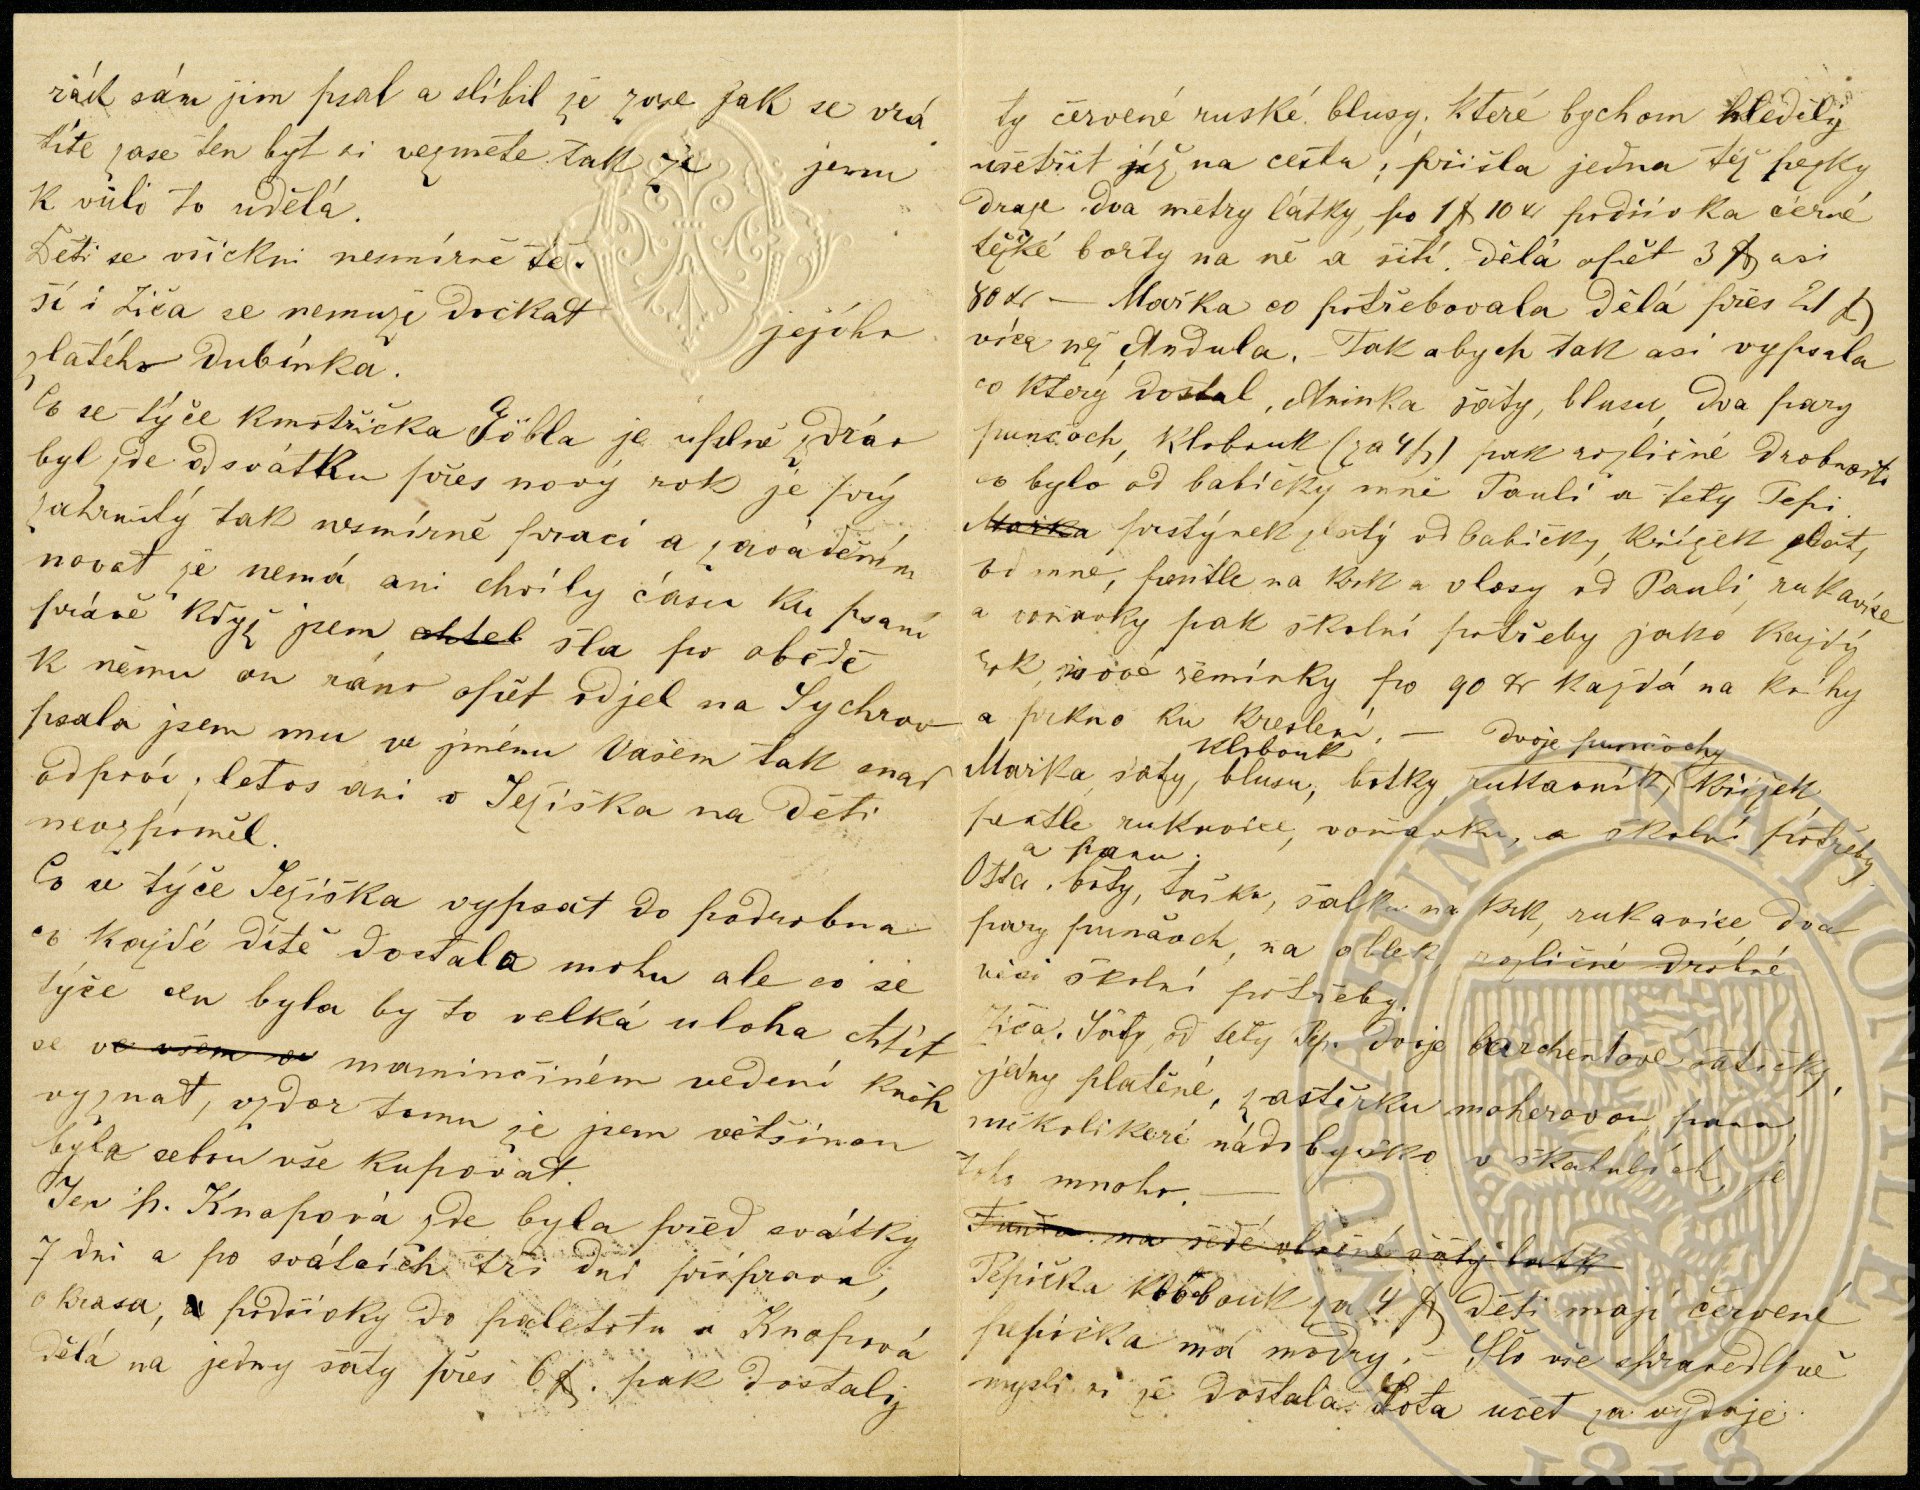 řák sám jim psal a slíbil že zase jak se vrá
títe zase ten byt si vezmete tak že jemu
k vůli to udělá.
Děti se všickni nesmírně tě-
ší i Ziča se nemuže dočkat jejóho
zlatého Dubínka.
Co se týče kmotříčka Göbla je uplně zdráv
byl zde od svátku přes nový rok je prý
zahrnutý tak nesmírně prací a zaváděním
novot že nemá ani chvíly času ku psaní
právě když jsem chtel šla po obědě
k němu on ráno opět odjel na Sychrov
psala jsem mu ve jménu Vašem tak snad
odpoví, letos ani o Ježíška na děti
nevzpoměl.
Co se týče Ježíška vypsat do podrobna
co kajdé dítě dostalo mohu ale co se
týče cen byla by to velká uloha chtít
se ve všem se maminčiném vedení knih
vyznat, vzdor tomu že jsem většinou
byla sebou vše kupovat.
Jen p. Knapová zde byla před svátky
7 dni a po svátcích tři dni příprava,
okrasa, a podšívky do paletotu a Knapová
dělá na jedny šaty přes 6 f. pak dostaly
ty červené ruské blusy, které bychom hleděly
ušetřit již na cestu, přišla jedna též hezky
draze dva metry látky po 1 f 10 kr podšívka černé
těžké borty na ně a šití. dělá opět 3 f asi
80 kr — Mařka co potřebovala dělá přes 21 f
více než Andula. – Tak abych tak asi vypsala
co který dostal, Aninka šaty, blusu, dva pary
punčoch, klobouk (za 4 f) pak rozličné drobnosti
co bylo od babičky mně Pauli a tety Pepi
Mařka prstýnek zlatý od babičky, křížek zlatý
od mně, pentle na krk a vlasy od Pauli, rukavice
a voňavky pak školní potřeby jako každý
rok, nové řemínky po 90 kr kajdá na knihy
a prkno ku kreslení. — dvoje punčochy
klobouk
Mařka šaty, blusu, botky, rukavník, křížek
pentle rukavice, voňavku, a školní potřeby
a panu.
Ota. boty, tašku, šálku na krk, rukavice dva
pary punčoch, na oblek, rozličné drobné
věci školní potřeby.
Ziča. Šaty od tety Pep. dvoje barchentové šatičky,
jedny platěné, zástěrku moherovou, panu,
několikeré nádobyčko v škatulích, je
toho mnoho. —
na šedé vlněné šaty latk
Pepička klobouk za 4 f děti mají červené
pepička má modrý. – Šlo vše spravedlivě
mysli si že dostala Lota učet za výdaje